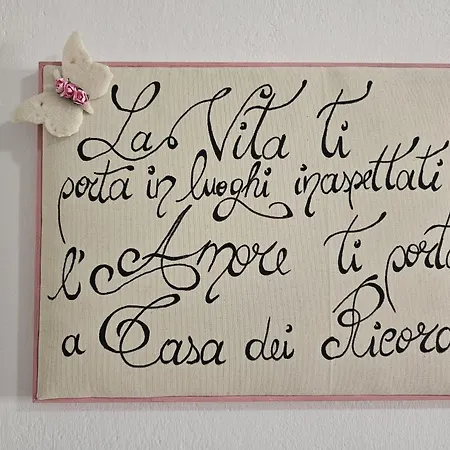 La Vita ti
porta in luoghi inaspettati
l'Amore ti porta
a Casa dei Ricord